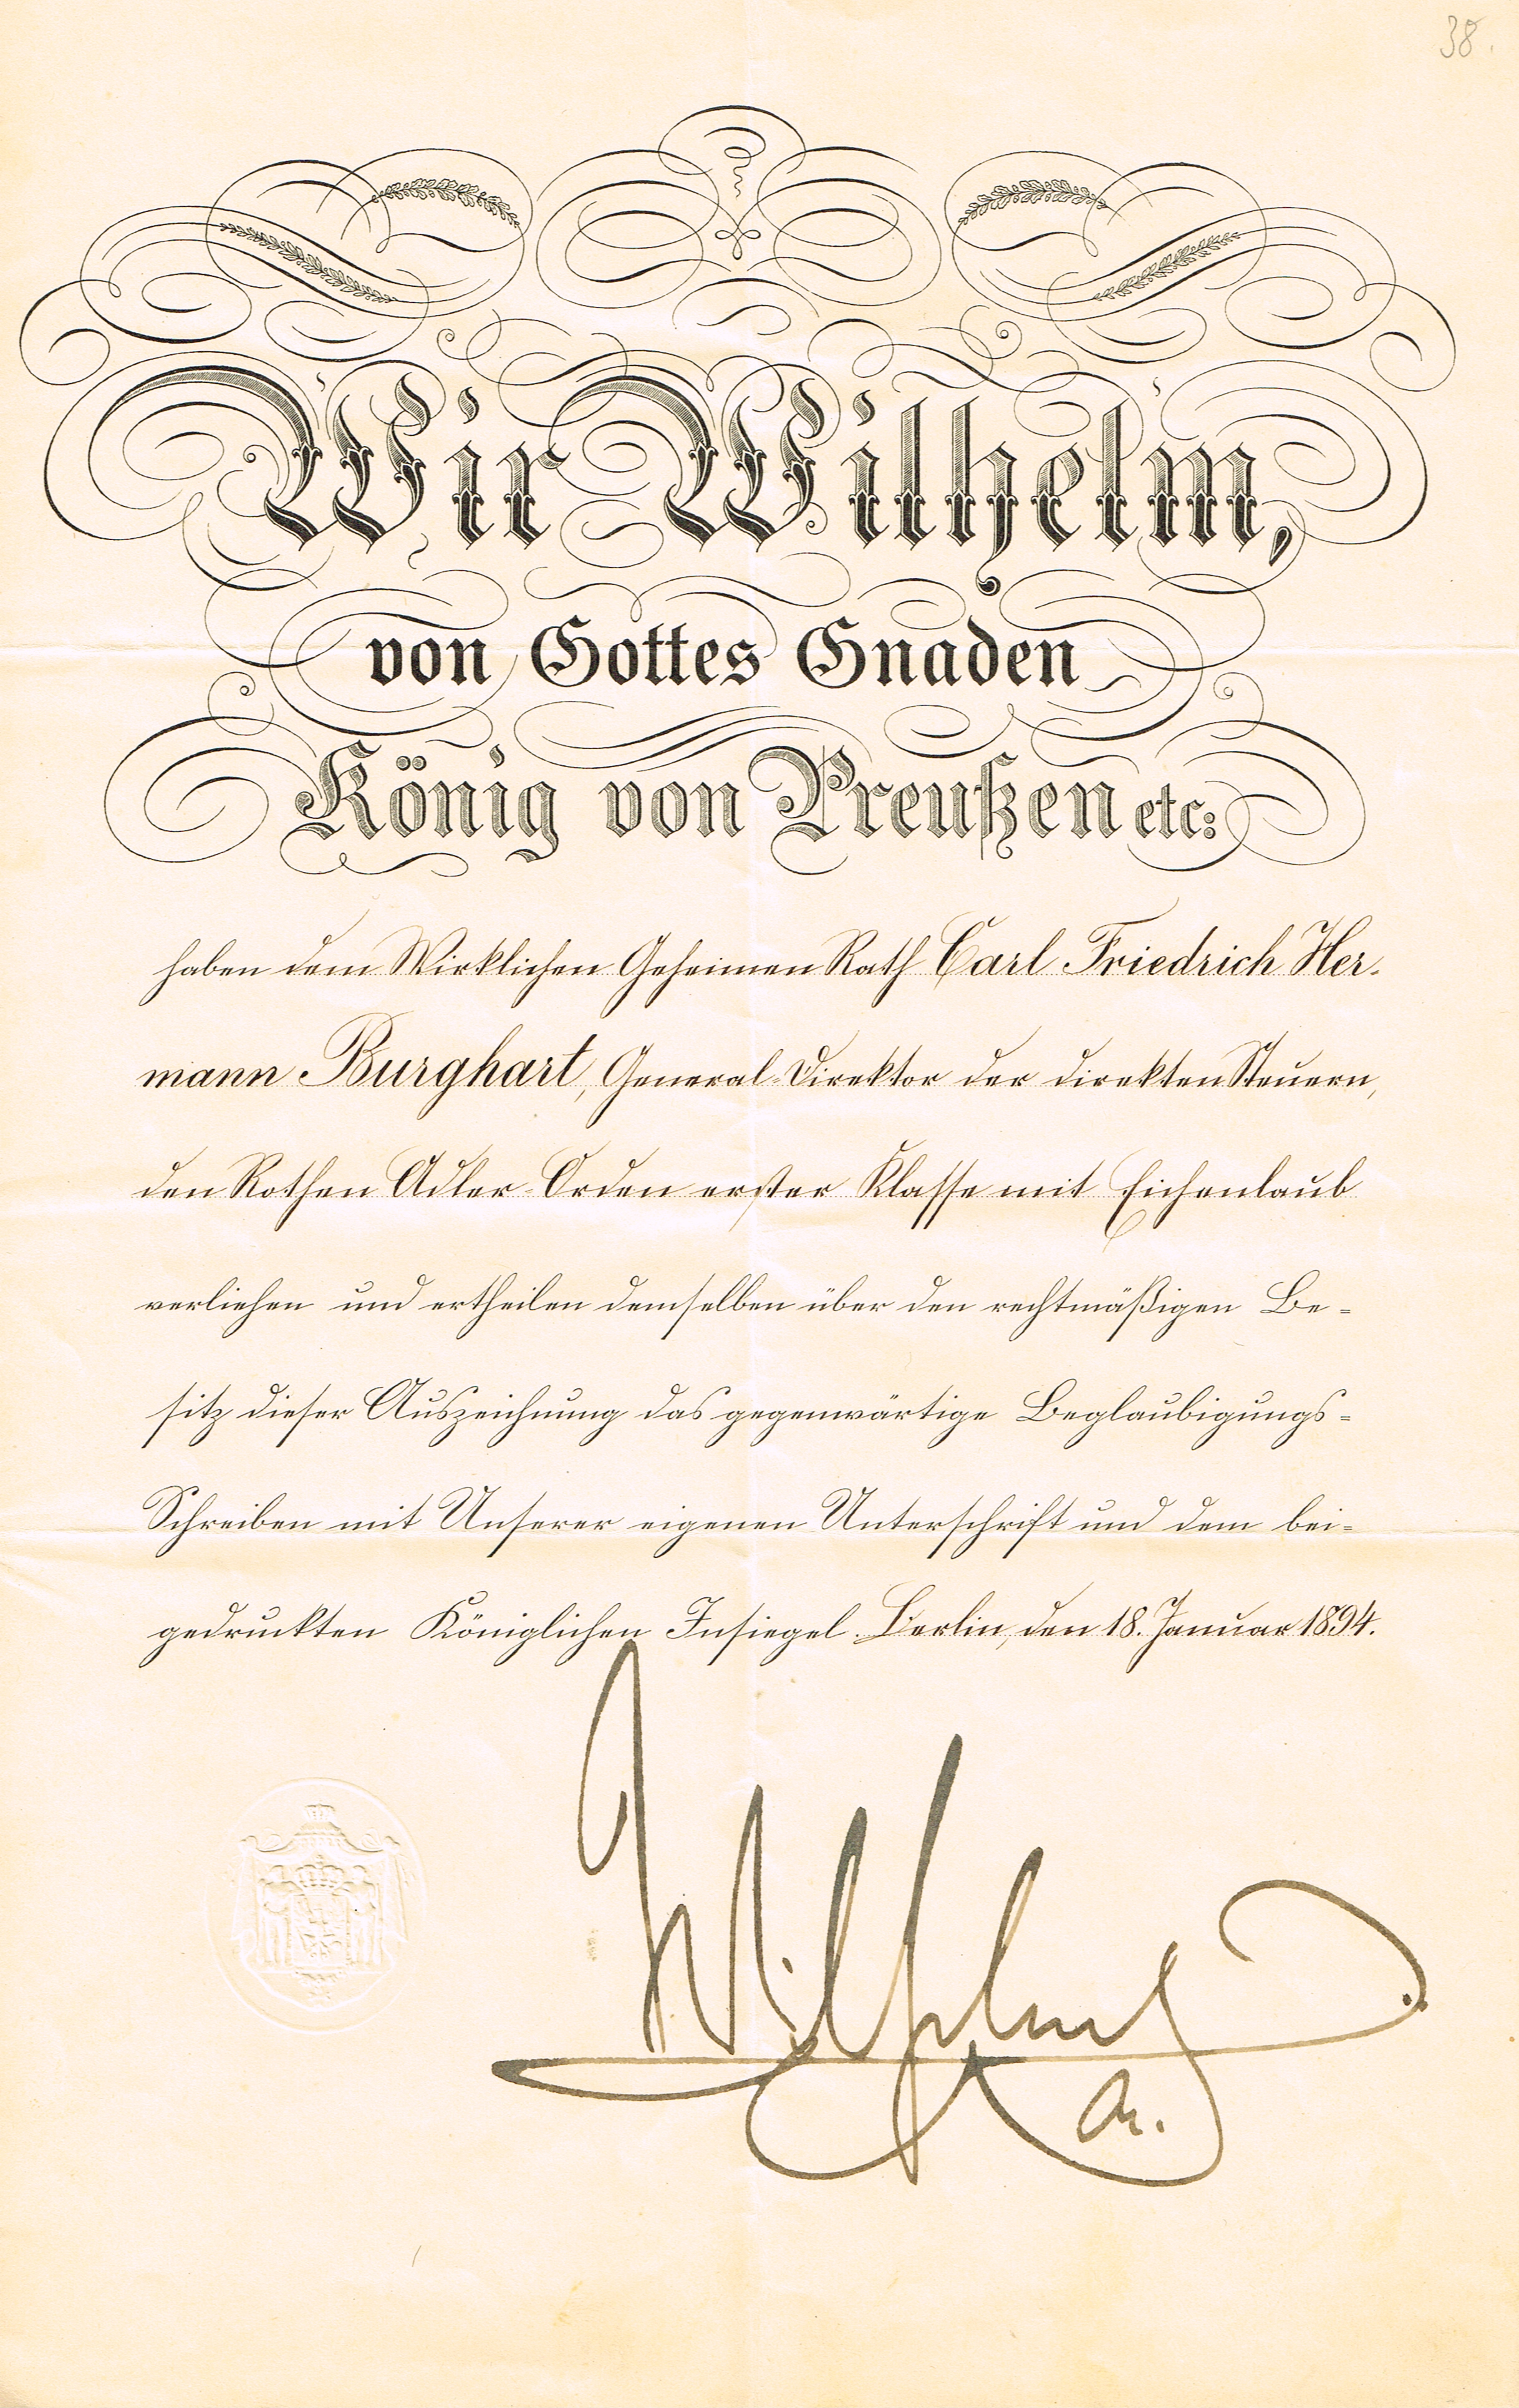 38.
Wir Wilhelm,
von Gottes Gnaden
König von Preußen etc:
haben dem Wirklichen Geheimen Rath Carl Friedrich Her-
mann Burghart, General-Direktor der direkten Steuern,
den Rothen Adler-Orden erster Klasse mit Eichenlaub
verliehen und ertheilen demselben über den rechtmäßigen Be=
sitz dieser Auszeichnung das gegenwärtige Beglaubigungs=
Schreiben mit Unserer eigenen Unterschrift und dem bei=
gedruckten Königlichen Insiegel. Berlin, den 18. Januar 1894.
Wilhelm
R.